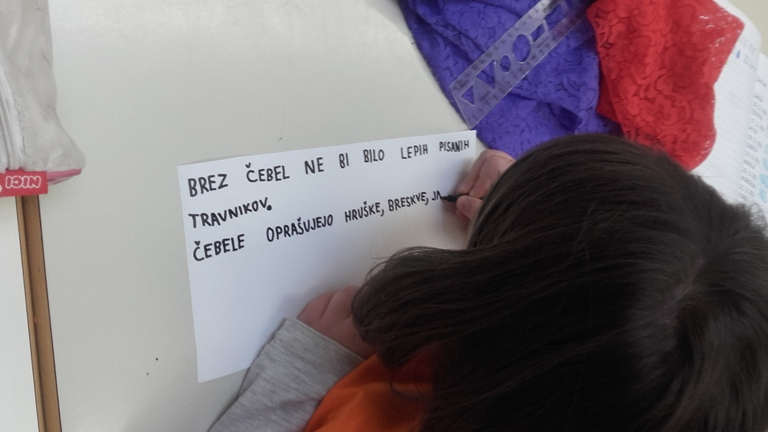 BREZ ČEBEL NE BI BILO LEPIH PISANIH
TRAVNIKOV.
ČEBELE OPRAŠUJEJO HRUŠKE, BRESKVE, JA
NICI